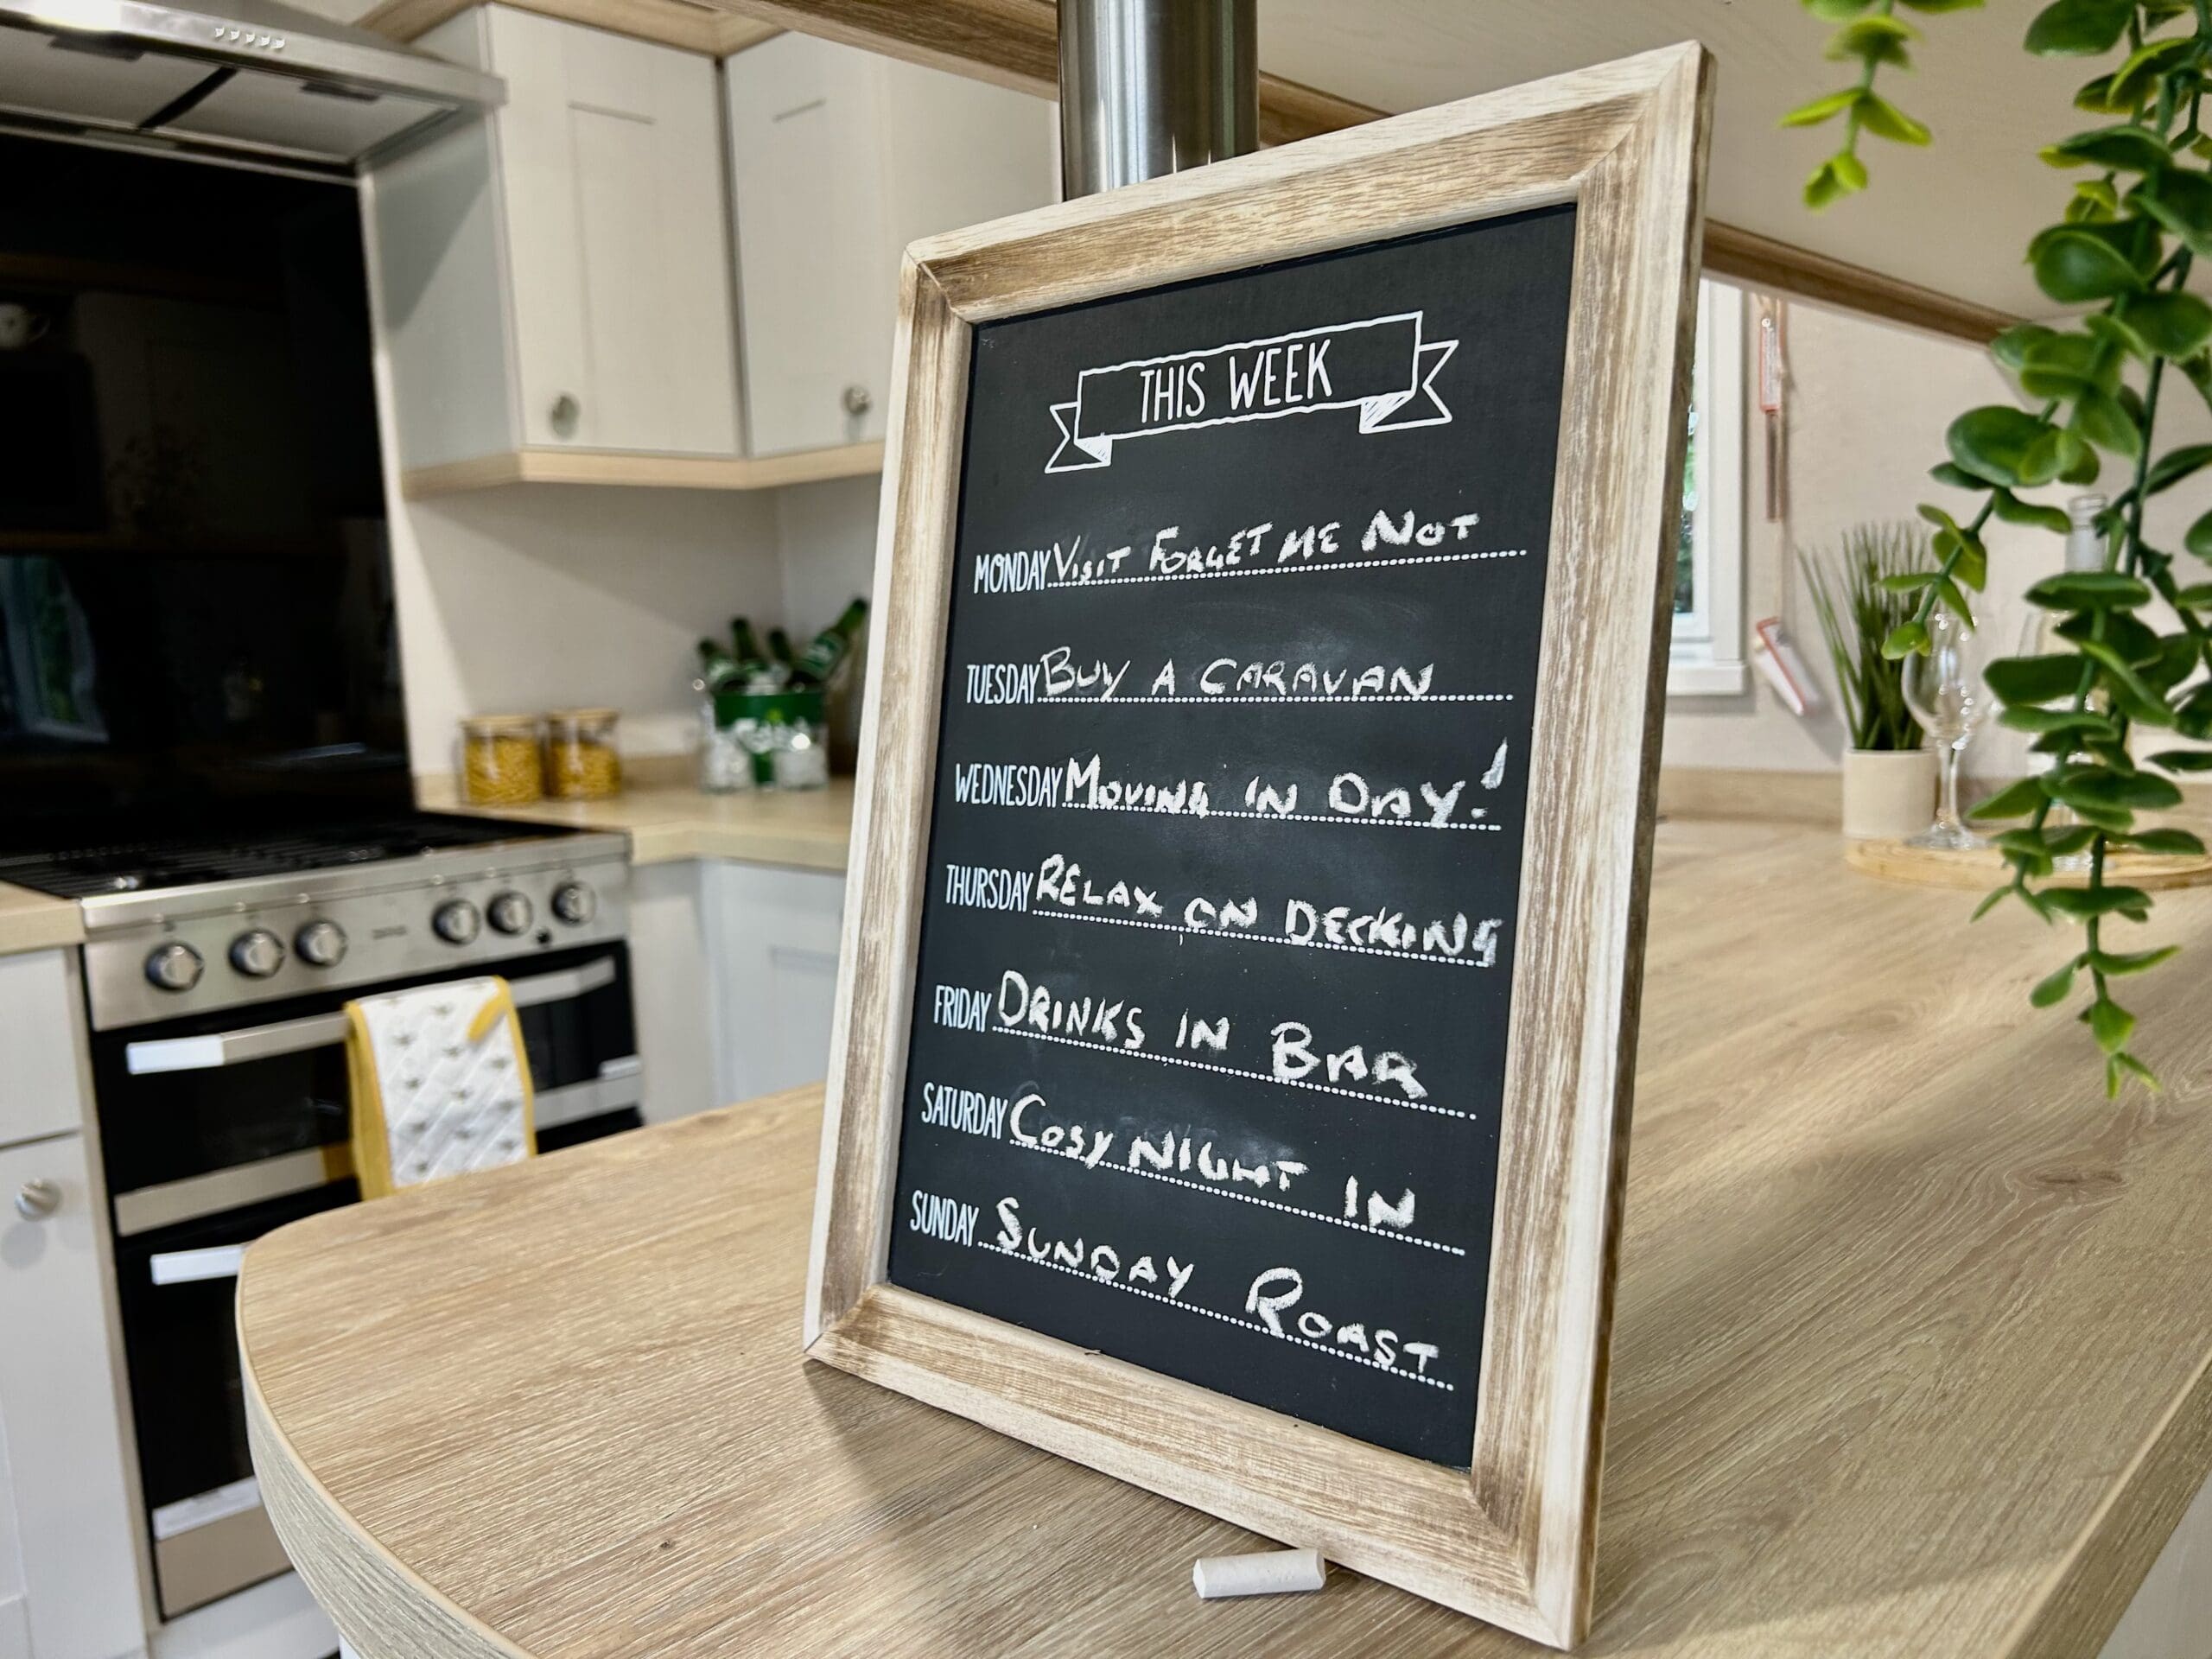 THIS WEEK
MONDAY VISIT FORGET ME NOT
TUESDAY BUY A CARAVAN
WEDNESDAY MOVING IN DAY!
THURSDAY RELAX ON DECKING
FRIDAY DRINKS IN BAR
SATURDAY COSY NIGHT IN
SUNDAY SUNDAY ROAST